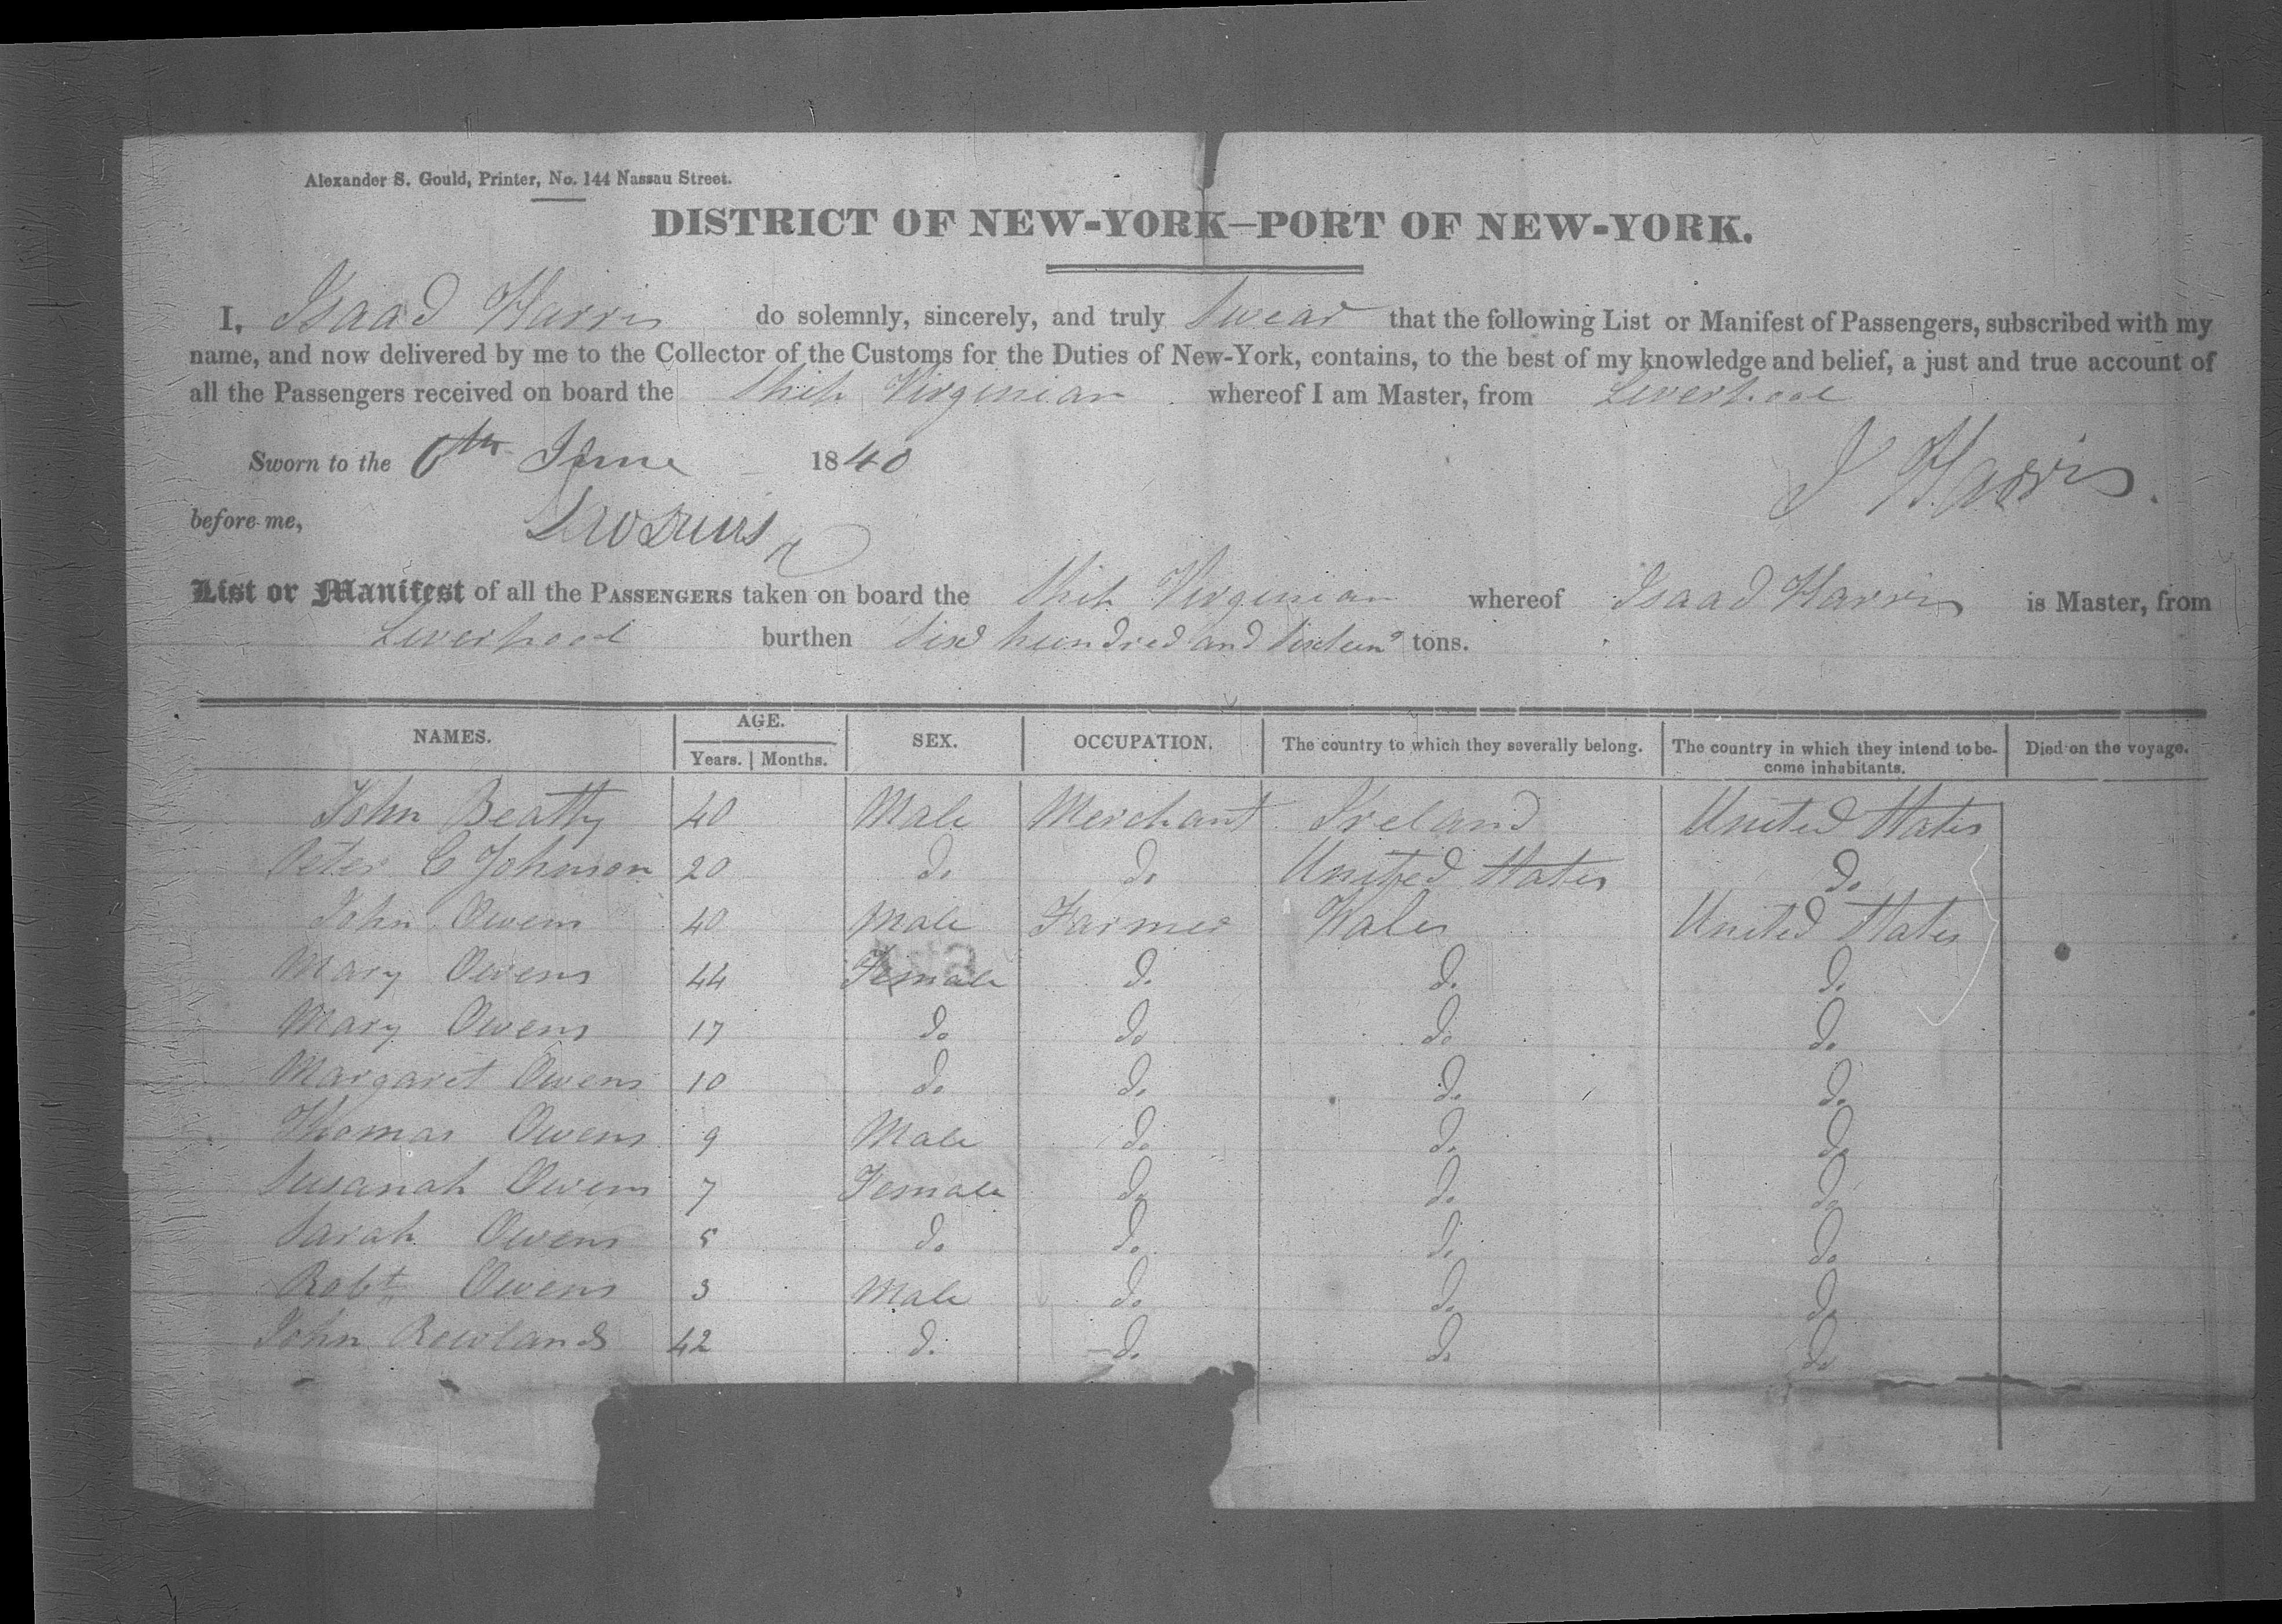 Alexander S. Gould, Printer, No. 144 Nassau Street.
DISTRICT OF NEW-YORK—PORT OF NEW-YORK.
I, Isaad Harris do solemnly, sincerely, and truly Swear that the following List or Manifest of Passengers, subscribed with my
name, and now delivered by me to the Collector of the Customs for the Duties of New-York, contains, to the best of my knowledge and belief, a just and true account of
all the Passengers received on board the Ship Virginian whereof I am Master, from Liverpool
Sworn to the 6th June 1840
I Harris.
before me,
List or Manifest of all the PASSENGERS taken on board the Ship Virginian whereof Isaad Harris is Master, from
Liverpool burthen Six hundred and Sixteen tons.
NAMES. AGE. Years. Months. SEX. OCCUPATION. The country to which they severally belong. The country in which they intend to become inhabitants. Died on the voyage.
John Beatty 40 Male Merchant Ireland United States
Peter C Johnson 20 do do United States do
John Owens 40 Male Farmer Wales United States
Mary Owens 44 Female do do do
Mary Owens 17 do do do do
Margaret Owens 10 do do do do
Thomas Owens 9 Male do do do
Susanah Owens 7 Female do do do
Sarah Owens 5 do do do do
Robt Owens 3 Male do do do
John Rowlands 42 do do do do